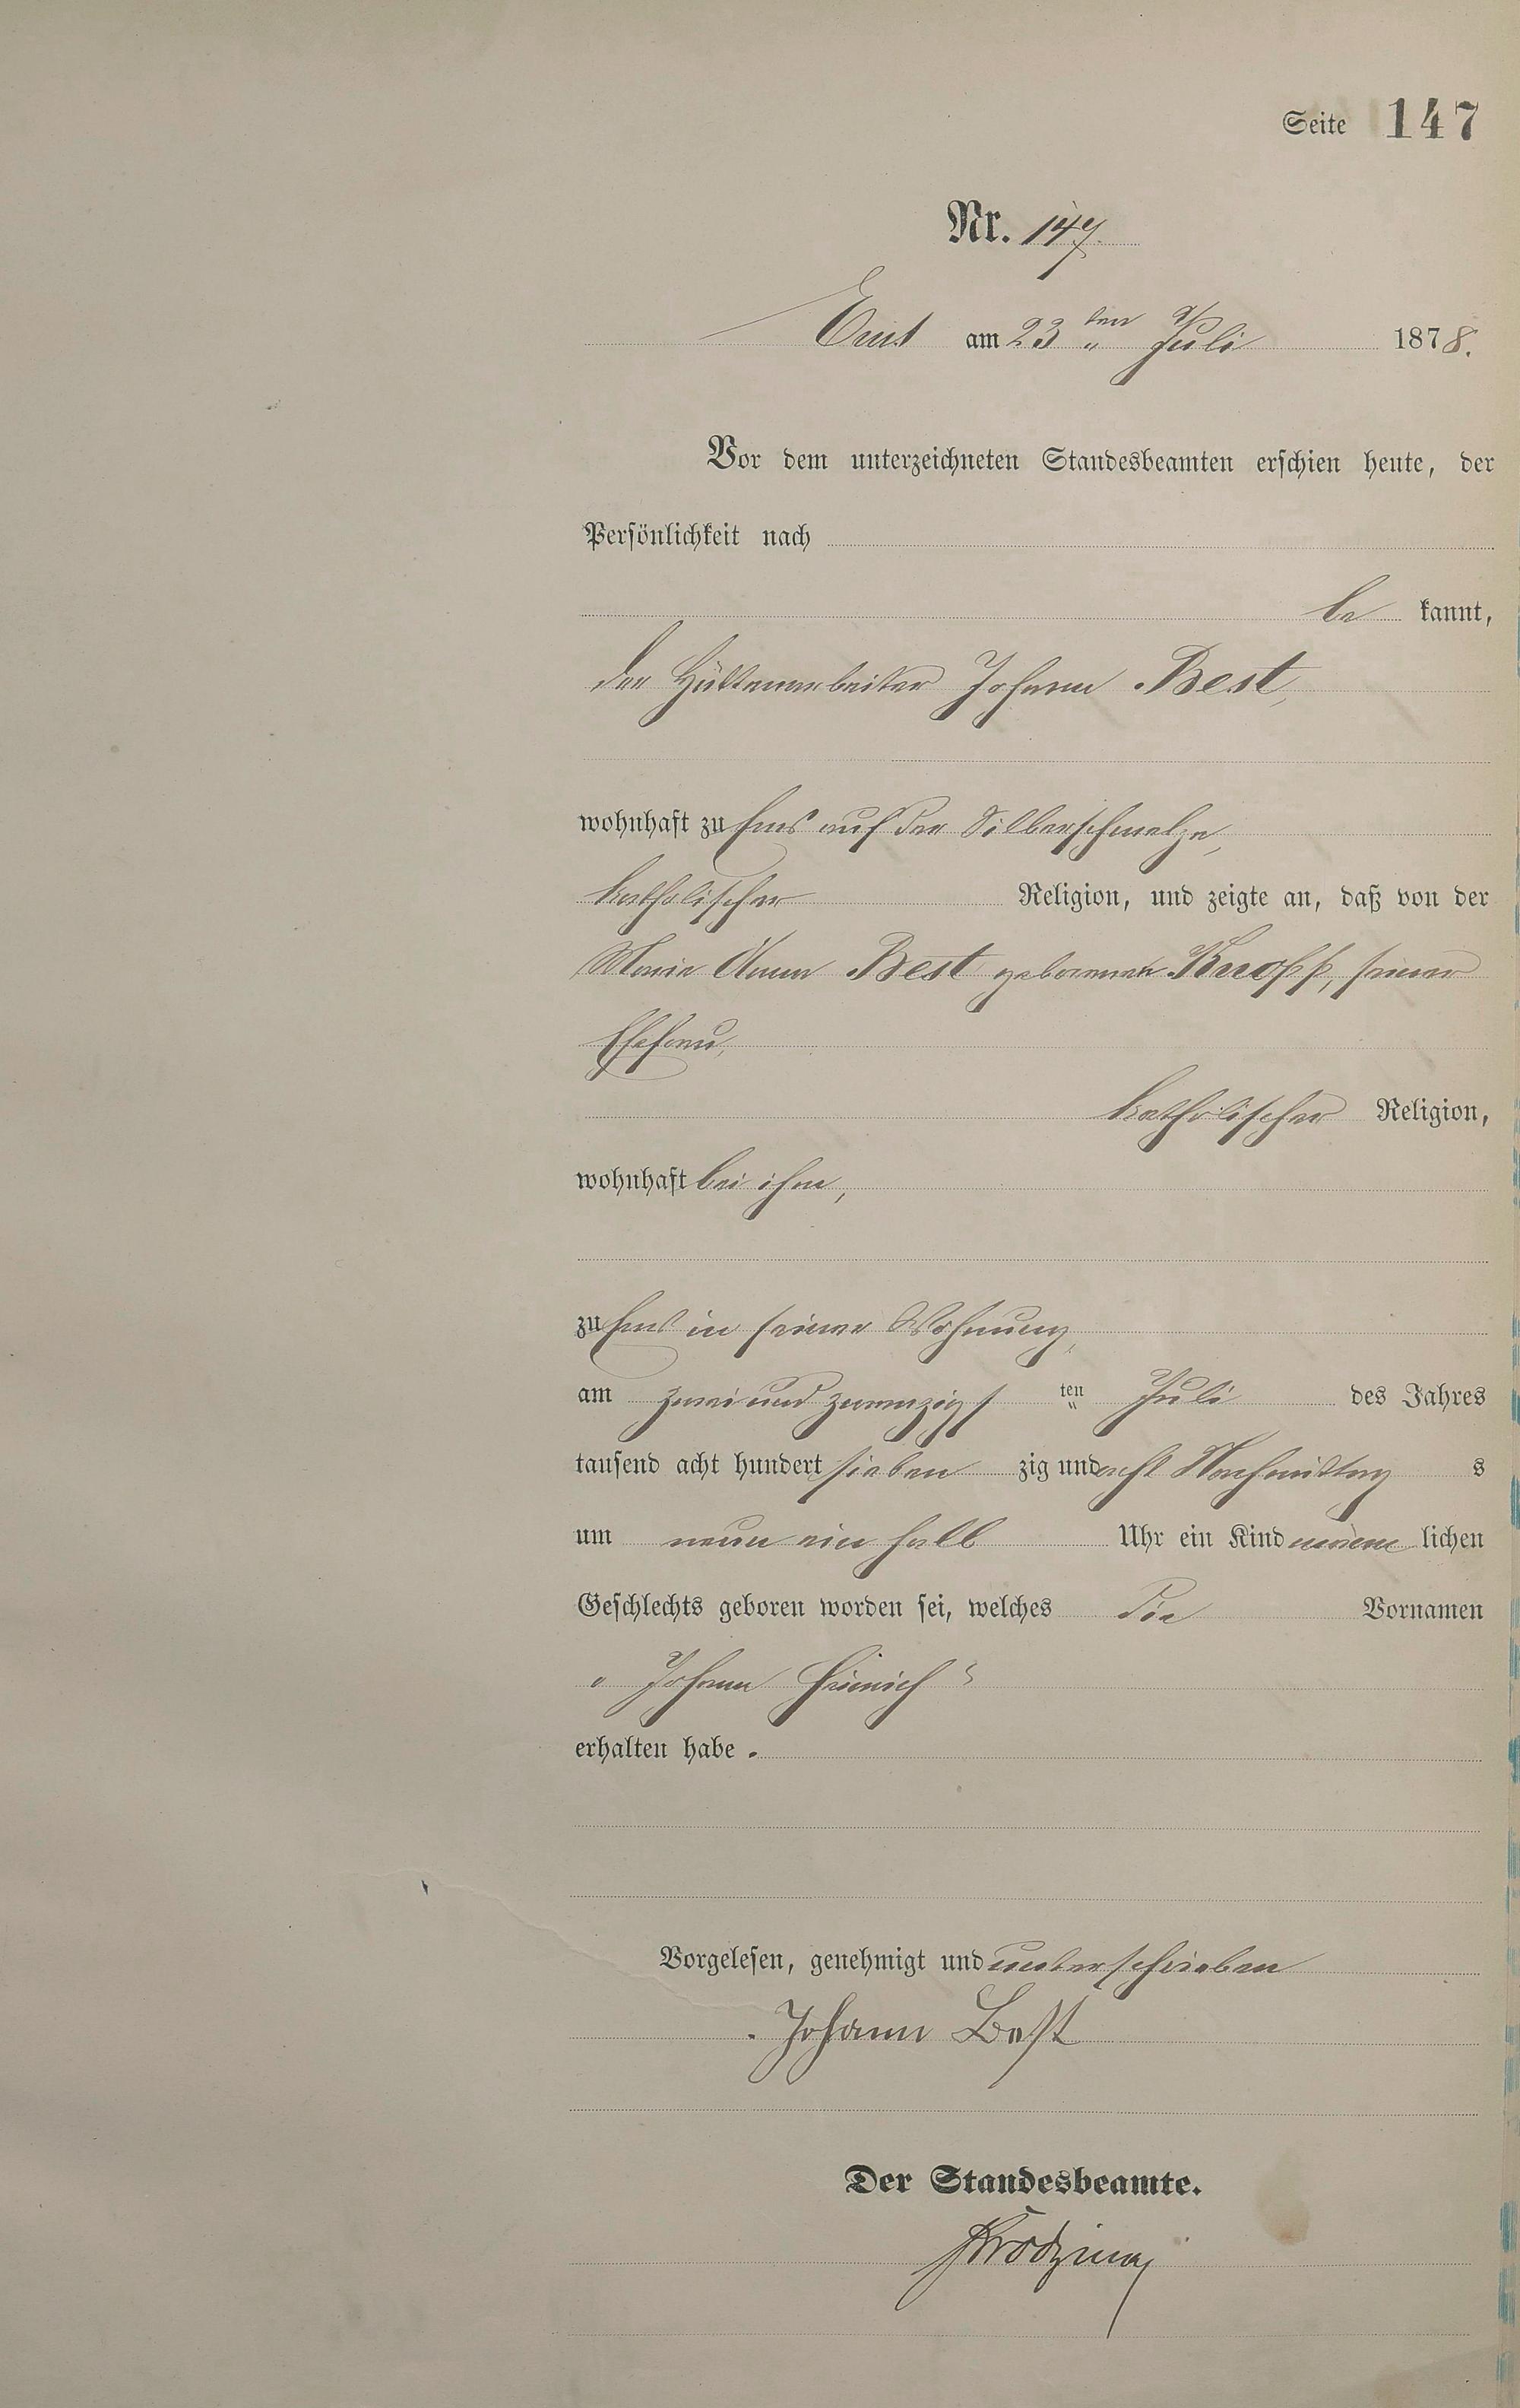 Seite 147
Nr. 147.
Ems am 23ten Juli 1878.
Vor dem unterzeichneten Standesbeamten erschien heute, der
Persönlichkeit nach
be kannt,
der Hüttenarbeiter Johann Best,
wohnhaft zu Ems auf der Silberschmelze,
katholischer Religion, und zeigte an, daß von der
Maria Anna Best geborenen Knopp, seiner
Ehefrau,
katholischer Religion,
wohnhaft bei ihm,
zu Ems in seiner Wohnung,
am zwei und zwanzigsten Juli des Jahres
tausend acht hundert sieben zig und acht Nachmittag s
um neun ein halb Uhr ein Kind männ lichen
Geschlechts geboren worden sei, welches die Vornamen
„Johann Heinrich“
erhalten habe.
Vorgelesen, genehmigt und unterschrieben
Johann Best
Der Standesbeamte.